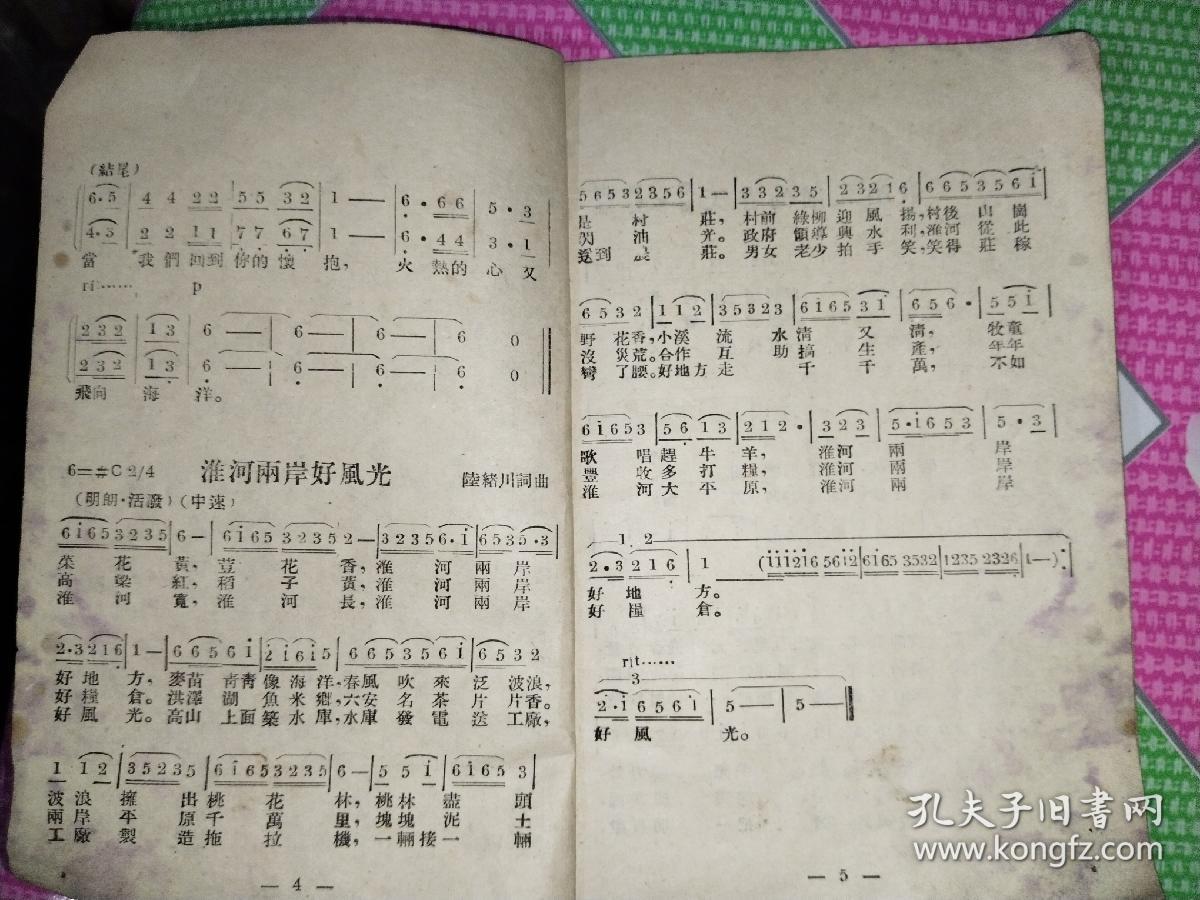 (結尾)
6·5 | 4 4 2 2 | 5 5 3 2 | 1 — | 6 · 6 6 | 5 · 3
4·3 | 2 2 1 1 | 7 7 6 7 | 1 — | 6 · 4 4 | 3 · 1
當 我們回到你的懷 抱, 火 熱的心又
rit…… p
2 3 2 | 1 3 | 6 — | 6 — | 6 — | 6 0
2 3 2 | 1 3 | 6 — | 6 — | 6 — | 6 0
飛向 海 洋。
6=#C 2/4 淮河兩岸好風光 陸緒川詞曲
(明朗·活潑)(中速)
6 i 6 5 3 2 3 5 | 6 — | 6 i 6 5 3 2 3 5 | 2 — | 3 2 3 5 6·i | 6 5 3 5·3
菜 花 黃, 荳 花 香, 淮 河 兩 岸
高 粱 紅, 稻 子 黃, 淮 河 兩 岸
淮 河 寬, 淮 河 長, 淮 河 兩 岸
2·3 2 1 6 | 1 — | 6 6 5 6 i | 2 i 6 i 5 | 6 6 5 3 5 6 i | 6 5 3 2
好 地 方, 麥苗 青靑像海洋,春風 吹 來 泛 波浪,
好 糧 倉。洪澤 湖 魚米鄉,六安 名 茶 片 片香。
好 風 光。高山 上面築水庫,水庫 發 電 送 工廠,
1 i 2 | 3 5 2 3 5 | 6 i 6 5 3 2 3 5 | 6 — | 5 5 i | 6 i 6 5 3
波 浪 擁 出 桃 花 林, 桃林 盡 頭
兩 岸 平 原 千 萬 里, 塊塊 泥 土
工 廠 製 造 拖 拉 機, 一輛接一 輛
— 4 —
5 6 5 3 2 3 5 6 | 1 — | 3 3 2 3 5 | 2 3 2 1 6 | 6 6 5 3 5 6 i
是 村 莊, 村前 綠柳 迎 風 揚,村後 山 崗
閃 油 光。政府 領導 興 水 利,淮河 從 此
送到 農 莊。男女 老少 拍 手 笑,笑得 莊 稼
6 5 3 2 | 1 1 2 | 3 5 3 2 3 | 6 i 6 5 3 i | 6 5 6 · | 5 5 i
野 花香,小溪 流 水 清 又 清, 牧童
沒 災荒。合作 互 助 搞 生 產, 年年
彎 了腰。好地方 走 千 千 萬, 不如
6 i 6 5 3 | 5 6 1 3 | 2 1 2 · | 3 2 3 | 5·i 6 5 3 | 5·3
歌 唱 趕 牛 羊, 淮河 兩 岸
豐 收 多 打 糧, 淮河 兩 岸
淮 河 大 平 原, 淮河 兩 岸
1. 2
2·3 2 1 6 | 1 (i i i i 2 i 6 5 6 i 2 | 6 i 6 5 3 5 3 2 | 1 2 3 5 2 3 2 6 | 1 —) :
好 地 方。
好 糧 倉。
rit……
3
2·i 6 5 6 i | 5 — | 5 — ||
好 風 光。
— 5 —
孔夫子旧書网
www.kongfz.com